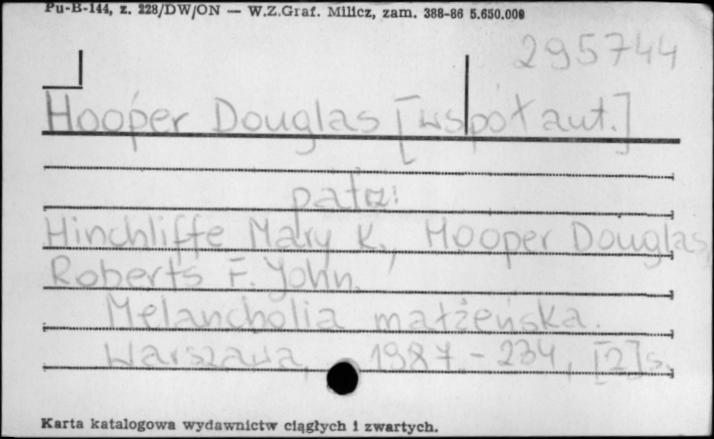 Pu-B-144, z. 228/DW/ON — W.Z.Graf. Milicz, zam. 388-86 5.650.000
295744
Hooper Douglas [współaut.]
patrz:
Hinchliffe Mary K., Hooper Douglas,
Roberts F. John.
Melancholia małżeńska.
Warszawa, 1987. - 234, [2] s.
Karta katalogowa wydawnictw ciągłych i zwartych.